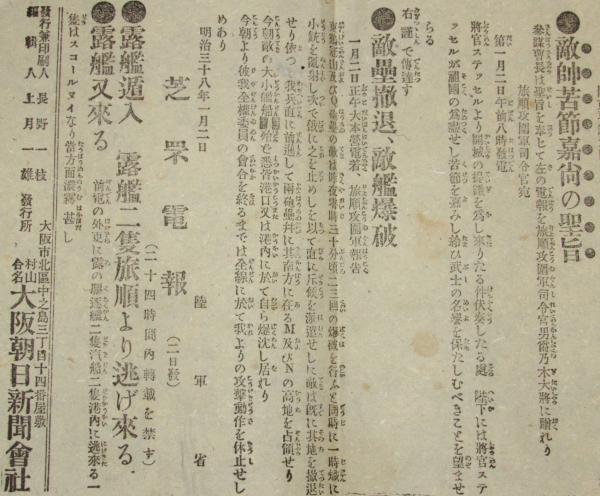 敵帥苦節嘉尚の聖旨
參謀曹長は聖旨を奉じて左の電報を旅順攻圍軍司令官男爵乃木大將に贈れり
旅順攻圍軍司令官宛
第一月二日午前八時發電
將官ステッセルより開城の提議を爲し來りたる件伏奏したる處 陛下には將官ステ
ッセルが祖國の爲盡せし苦節を嘉みし給ひ武士の名譽を保たしむべきことを望ませ
らる
右謹で傳達す
敵壘撤退、敵艦爆破
一月二日正午大本營電着、旅順攻圍軍報告
の敵は昨夜零時三十分頃二三回の爆破を行ふと同時に一時熾に
小銃を亂射し次で俄に之を止めしを以て直に斥候を派遣せしに敵は既に其地を撤退
せり依つて我兵直に前進して兩砲壘幷に其南方に在るM及びNの高地を占領せり
今朝敵の大小艦艇殆ど悉皆港口又は港內に於て自ら爆沈し居れり
今朝より彼我全權委員の會合を終るまでは全線に於て我よりの攻擊動作を休止せし
めあり
明治三十八年一月二日
陸軍省
芝罘電報
(二日發)
(二十四時間內轉載を禁ず)
露艦遁入 露艦二隻旅順より逃げ來る
露艦又來る 前電の外更に露の驅逐艦二隻汽艦二隻港內に逃來る一
隻はスコールヌイなり當方面濃霧甚し
發行兼印刷人 長野一枝
編輯人 上月一雄
發行所
大阪市北區中之島三丁目十四番屋敷
村山合名大阪朝日新聞會社